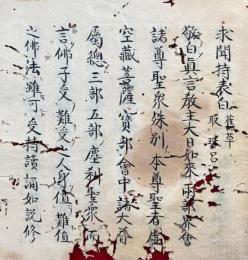 求聞持表白 舊草
敬白眞言教主大日如来両部界會
諸尊聖衆殊別本尊聖者虚
空藏菩薩寳部會中諸大眷
屬総三部五部塵利聖衆而
言佛子受難受之人身値難値
之佛法雖可受持讀誦如説修